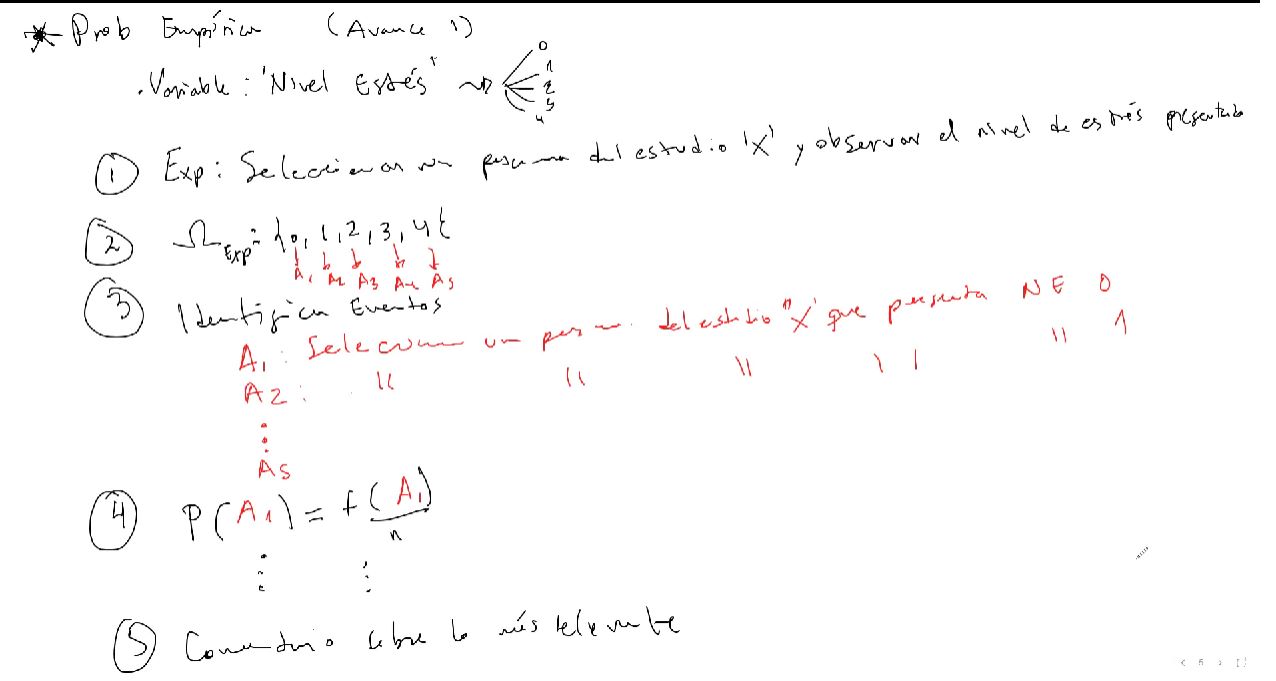 * Prob Empírica (Avance 1)
. Variable: 'Nivel Estés'
0
1
2
3
4
① Exp: Seleccionar un persona del estudio 'X' y observar el nivel de estrés presentado
② Ω Exp = {0, 1, 2, 3, 4}
A1 A2 A3 A4 A5
③ Identificar Eventos
A1: Seleccionar un persona del estudio "X" que presenta NE 0
A2: " " " " " 1
⋮
A5
④ P(A1) = f(A1)/n
⋮ ⋮
⑤ Comentario sobre lo más relevante
< 6 >